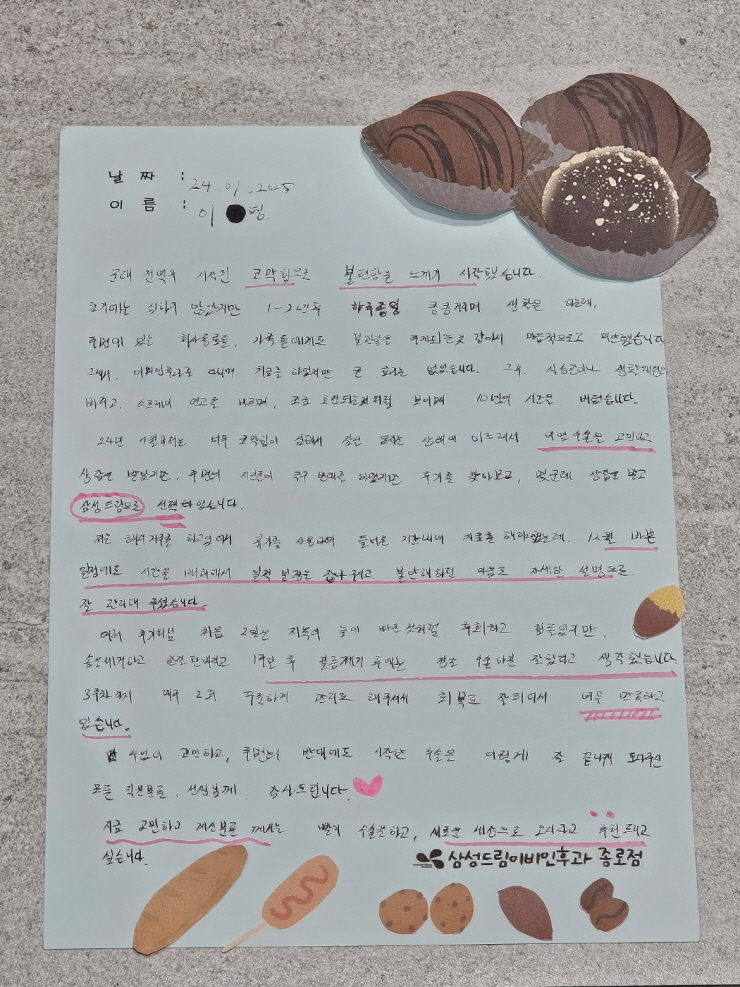 날 짜 : 24 01 . 2025
이 름 : 이 평.
군대 전역후 시작된 코막힘으로 불편함을 느끼기 시작했습니다.
초기에는 심하지 않았지만 1-2년후 하루종일 킁킁거리며 생활을 하는데,
주변에 있는 회사동료들, 가족들에게도 불편함을 주게되는것 같아서 마음적으로도 미안했습니다
그래서, 이비인후과를 다니며 치료를 하였지만 큰 효과는 없었습니다. 그후, 식습관이나 생활패턴
바꾸고, 스프레이 연고를 바르며, 조금 호전되는것처럼 보이며 10년의 시간을 버텼습니다.
24년 너무 코막힘이 심해서 잠을 못자는 상태에 이르러서 비염 수술을 고민하고
상담을 받았지만, 주변의 지인들이 극구 반대를 하였지만 후기를 찾아보고, 몇군데 상담을 받고
삼성드림으로 선택하였습니다.
저는 해외 거주를 하고있어서 휴가를 사용하여 들어온 기간내에 치료를 해야했는데, 1월 바쁜
일정에도 시간을 내서 일정 불안해하던 마음도 자세한 설명으로
잘 관리해 주셨습니다
여러 후기처럼 처음 2일은 지옥의 늪에 빠진 것처럼 후회하고 힘들었지만,
솜을제거하고 1주일 후 정말 수술하길 잘했다고 생각했습니다.
3주차까지 매주 2회 꾸준하게 관리도 해주셔서 회복도 잘되어서 너무 만족하고
있습니다.
수없이 고민하고, 주변의 반대에도 시작한 수술을 이렇게 잘 끝나게 도와주신
모든 직원분들, 선생님께 감사드립니다.
지금 고민하고 계신분들 께서는 빨리 수술을하고, 새로운 세상으로 오시라고 추천드리고
싶습니다.
삼성드림이비인후과 종로점